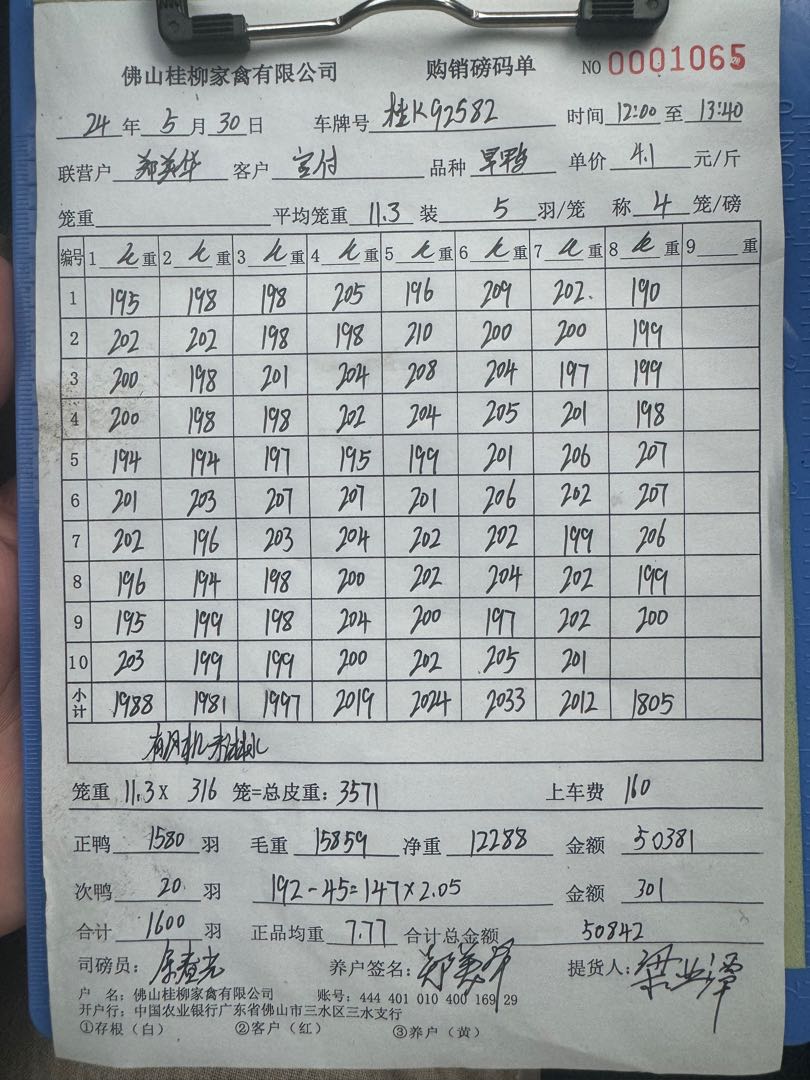 佛山桂柳家禽有限公司 购销磅码单 NO 0001065
24 年 5 月 30 日 车牌号 桂K92582 时间 12:00 至 13:40
联营户 郑英华 客户 宝付 品种 旱鸭 单价 4.1 元/斤
笼重 平均笼重 11.3 装 5 羽/笼 称 4 笼/磅
编号 1 重 2 重 3 重 4 重 5 重 6 重 7 重 8 重 9 重
1 195 198 198 205 196 209 202. 190
2 202 202 198 198 210 200 200 199
3 200 198 201 204 208 204 197 199
4 200 198 198 202 204 205 201 198
5 194 194 197 195 199 201 206 207
6 201 203 207 207 201 206 202 207
7 202 196 203 204 202 202 199 206
8 196 194 198 200 202 204 202 199
9 195 199 198 204 200 197 202 200
10 203 199 199 200 202 205 201
小计 1988 1981 1997 2019 2024 2033 2012 1805
笼重 11.3 X 316 笼=总皮重: 3571 上车费 160
正鸭 1580 羽 毛重 15859 净重 12288 金额 50381
次鸭 20 羽 192-45=147×2.05 金额 301
合计 1600 羽 正品均重 7.77 合计总金额 50842
司磅员: 养户签名: 提货人:
户 名: 佛山桂柳家禽有限公司 账号: 444 401 010 400 169 29
开户行: 中国农业银行广东省佛山市三水区三水支行
①存根(白) ②客户(红) ③养户(黄)